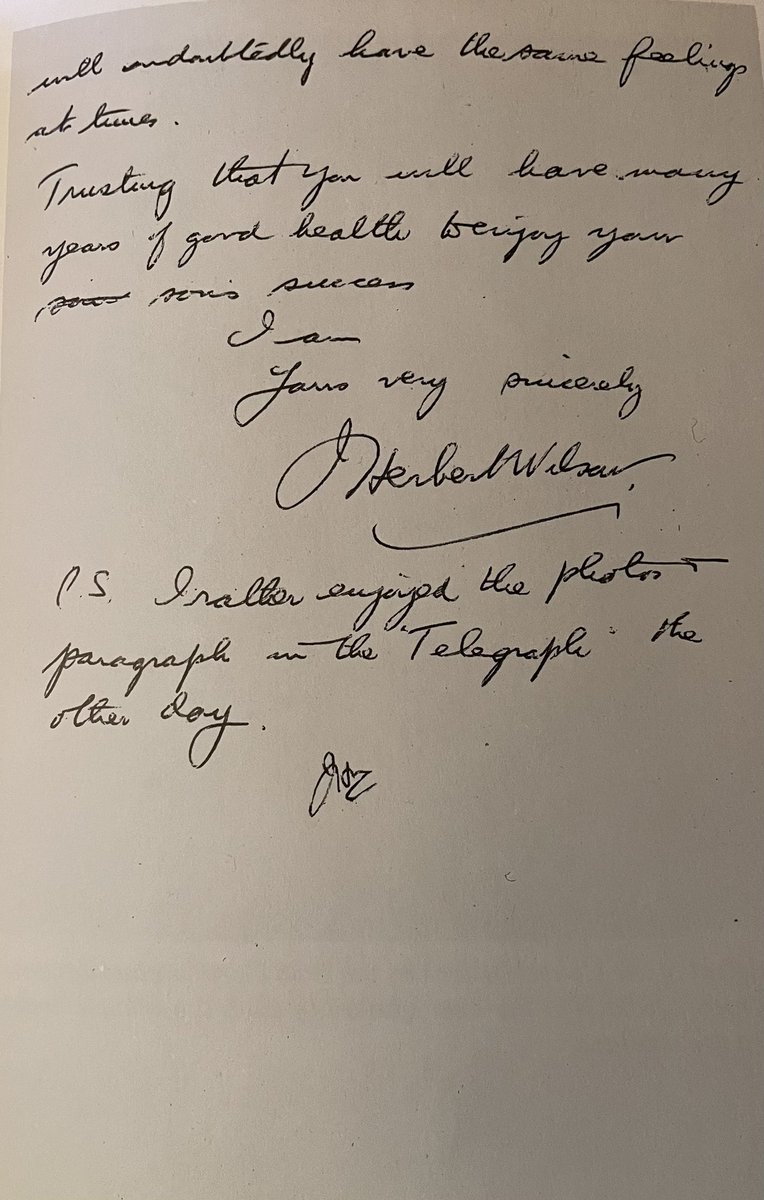 will undoubtedly have the same feelings
at times.
Trusting that you will have many
years of good health to enjoy your
sons son's success
I am
Yours very sincerely
J Herbert Wilson.
P.S. I rather enjoyed the photos +
paragraph in the "Telegraph" the
other day.